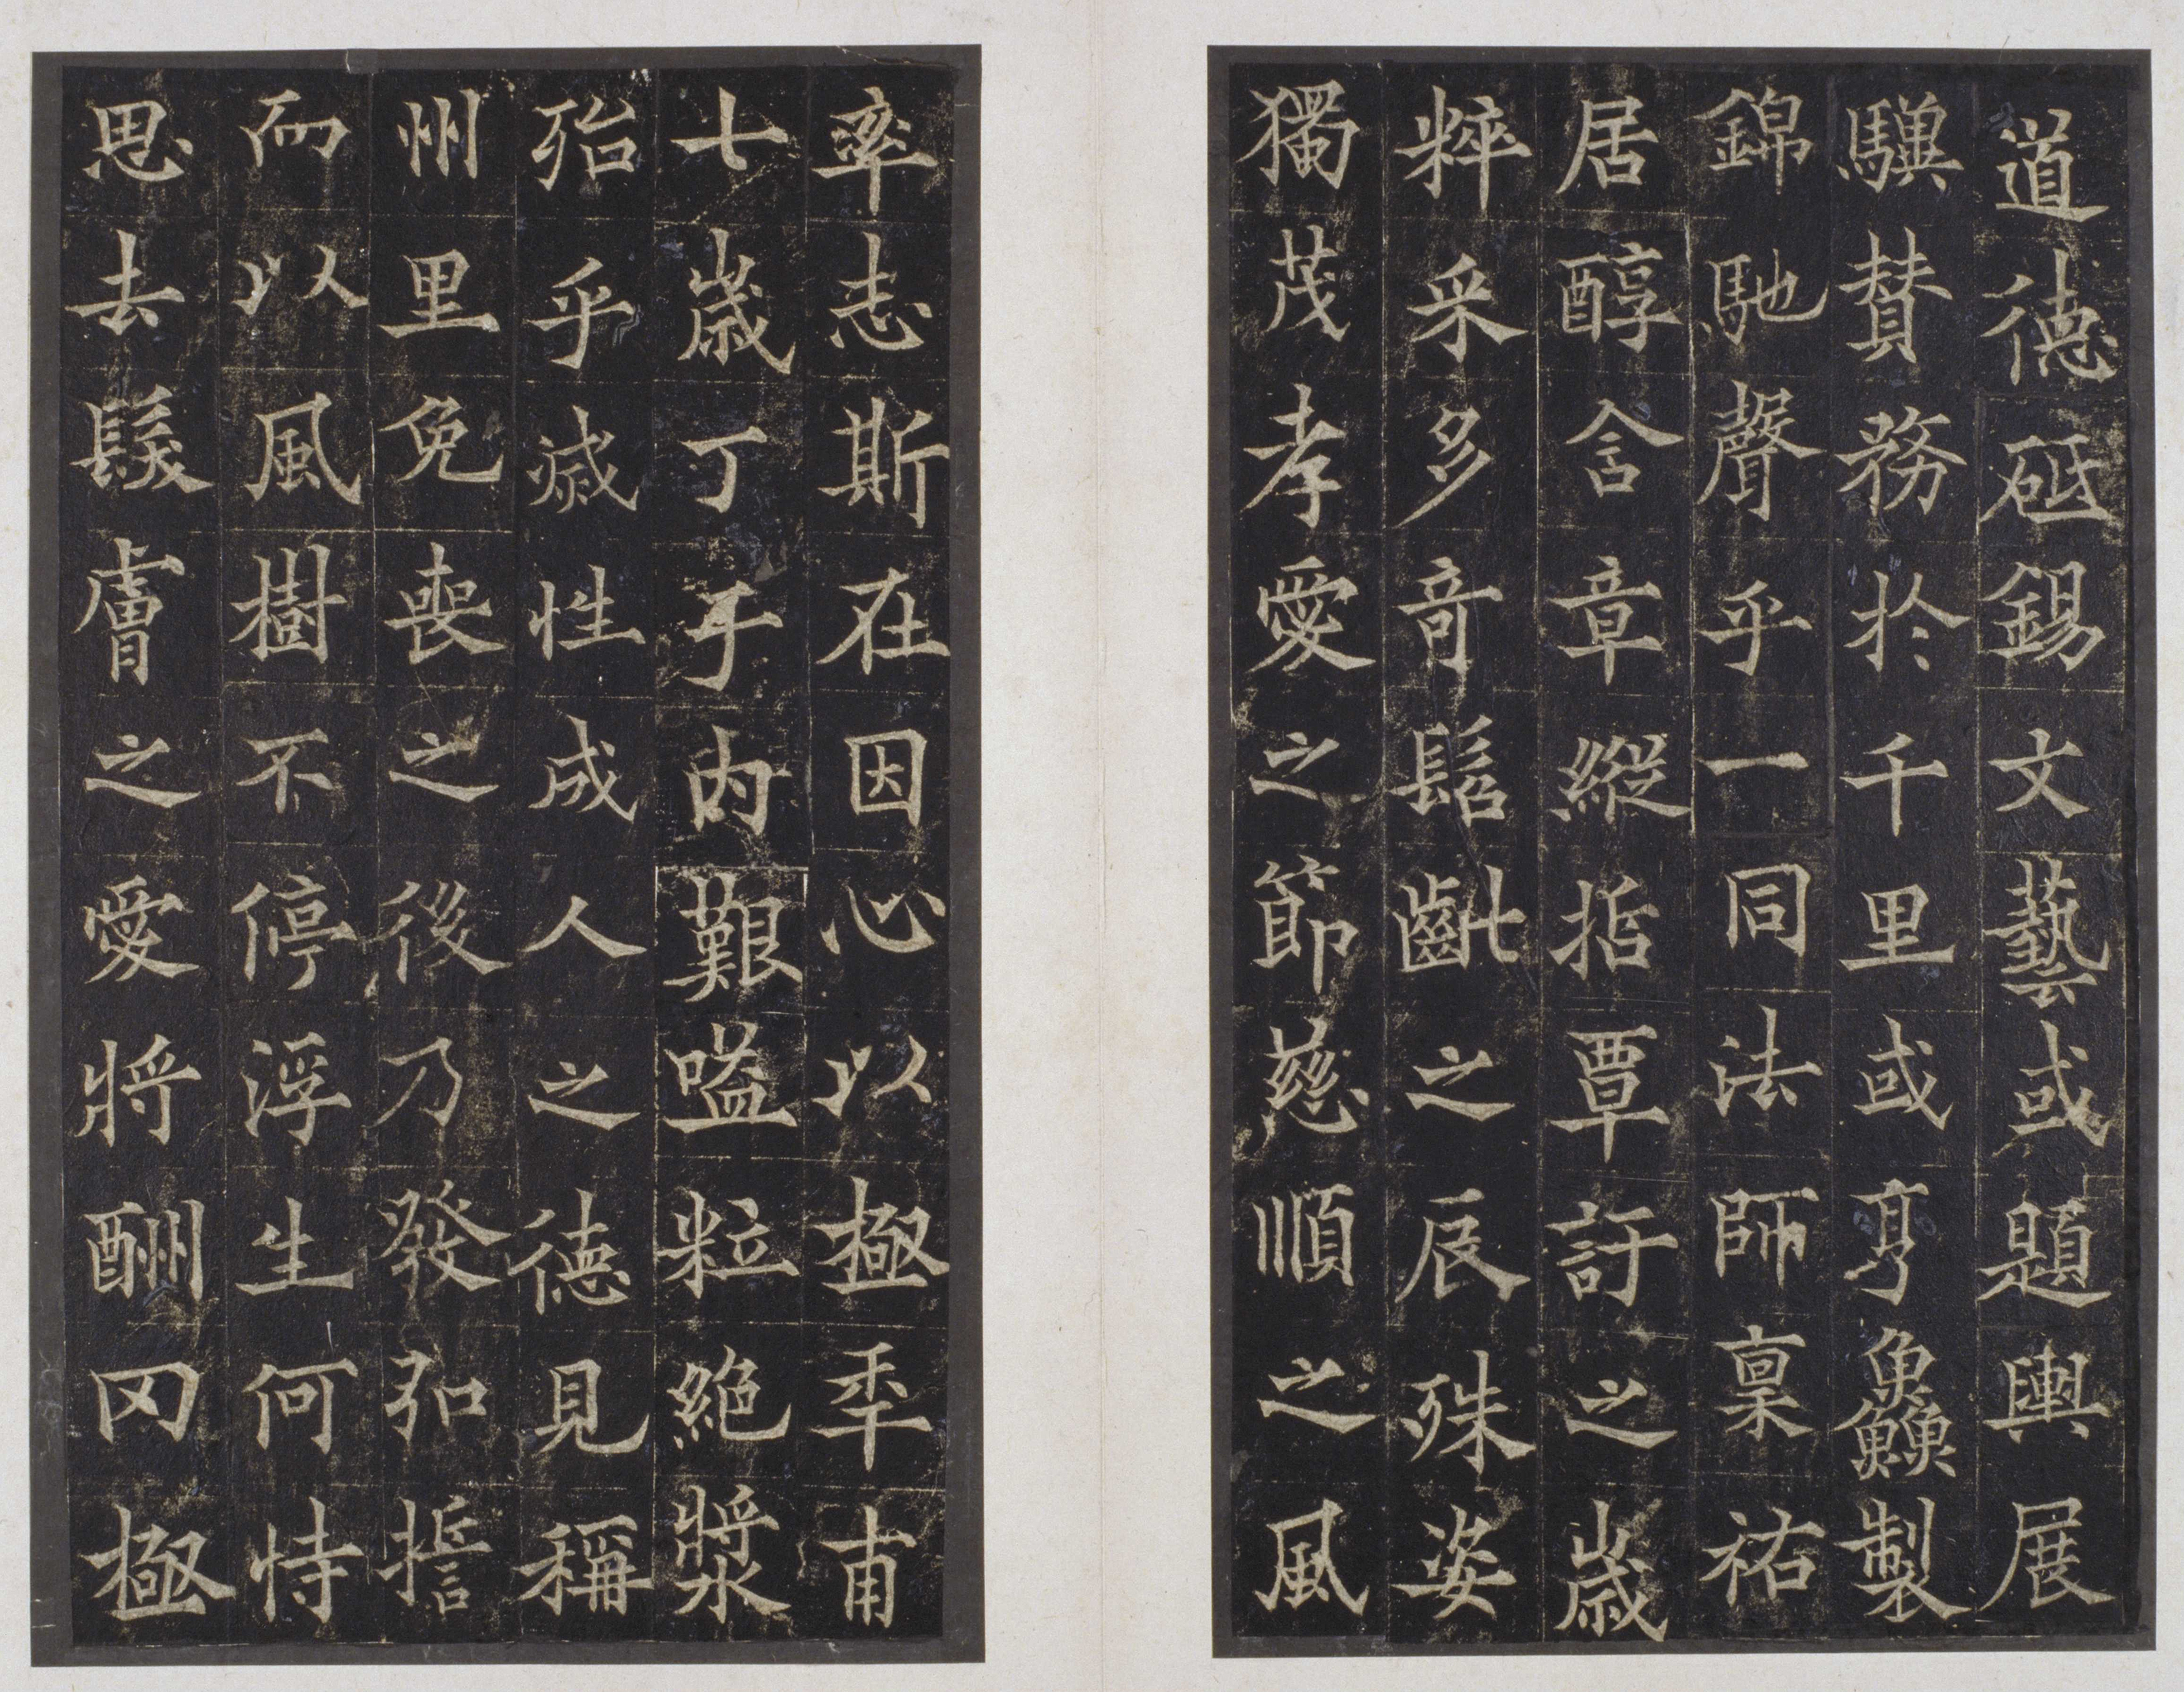 道德砥錫文藝或題輿展
驥賛務於千里或亨鱻製
錦馳聲乎一同法師稟祐
居醇含章縱指覃訏之歲
粹采多竒髫齔之辰殊姿
獨茂孝愛之節慈順之風
率志斯在因心以極秊甫
七歲丁于內艱嗌粒絕漿
殆乎滅性成人之德見稱
州里免喪之後乃發弘誓
而以風樹不停浮生何恃
思去髮膚之愛將酬罔極